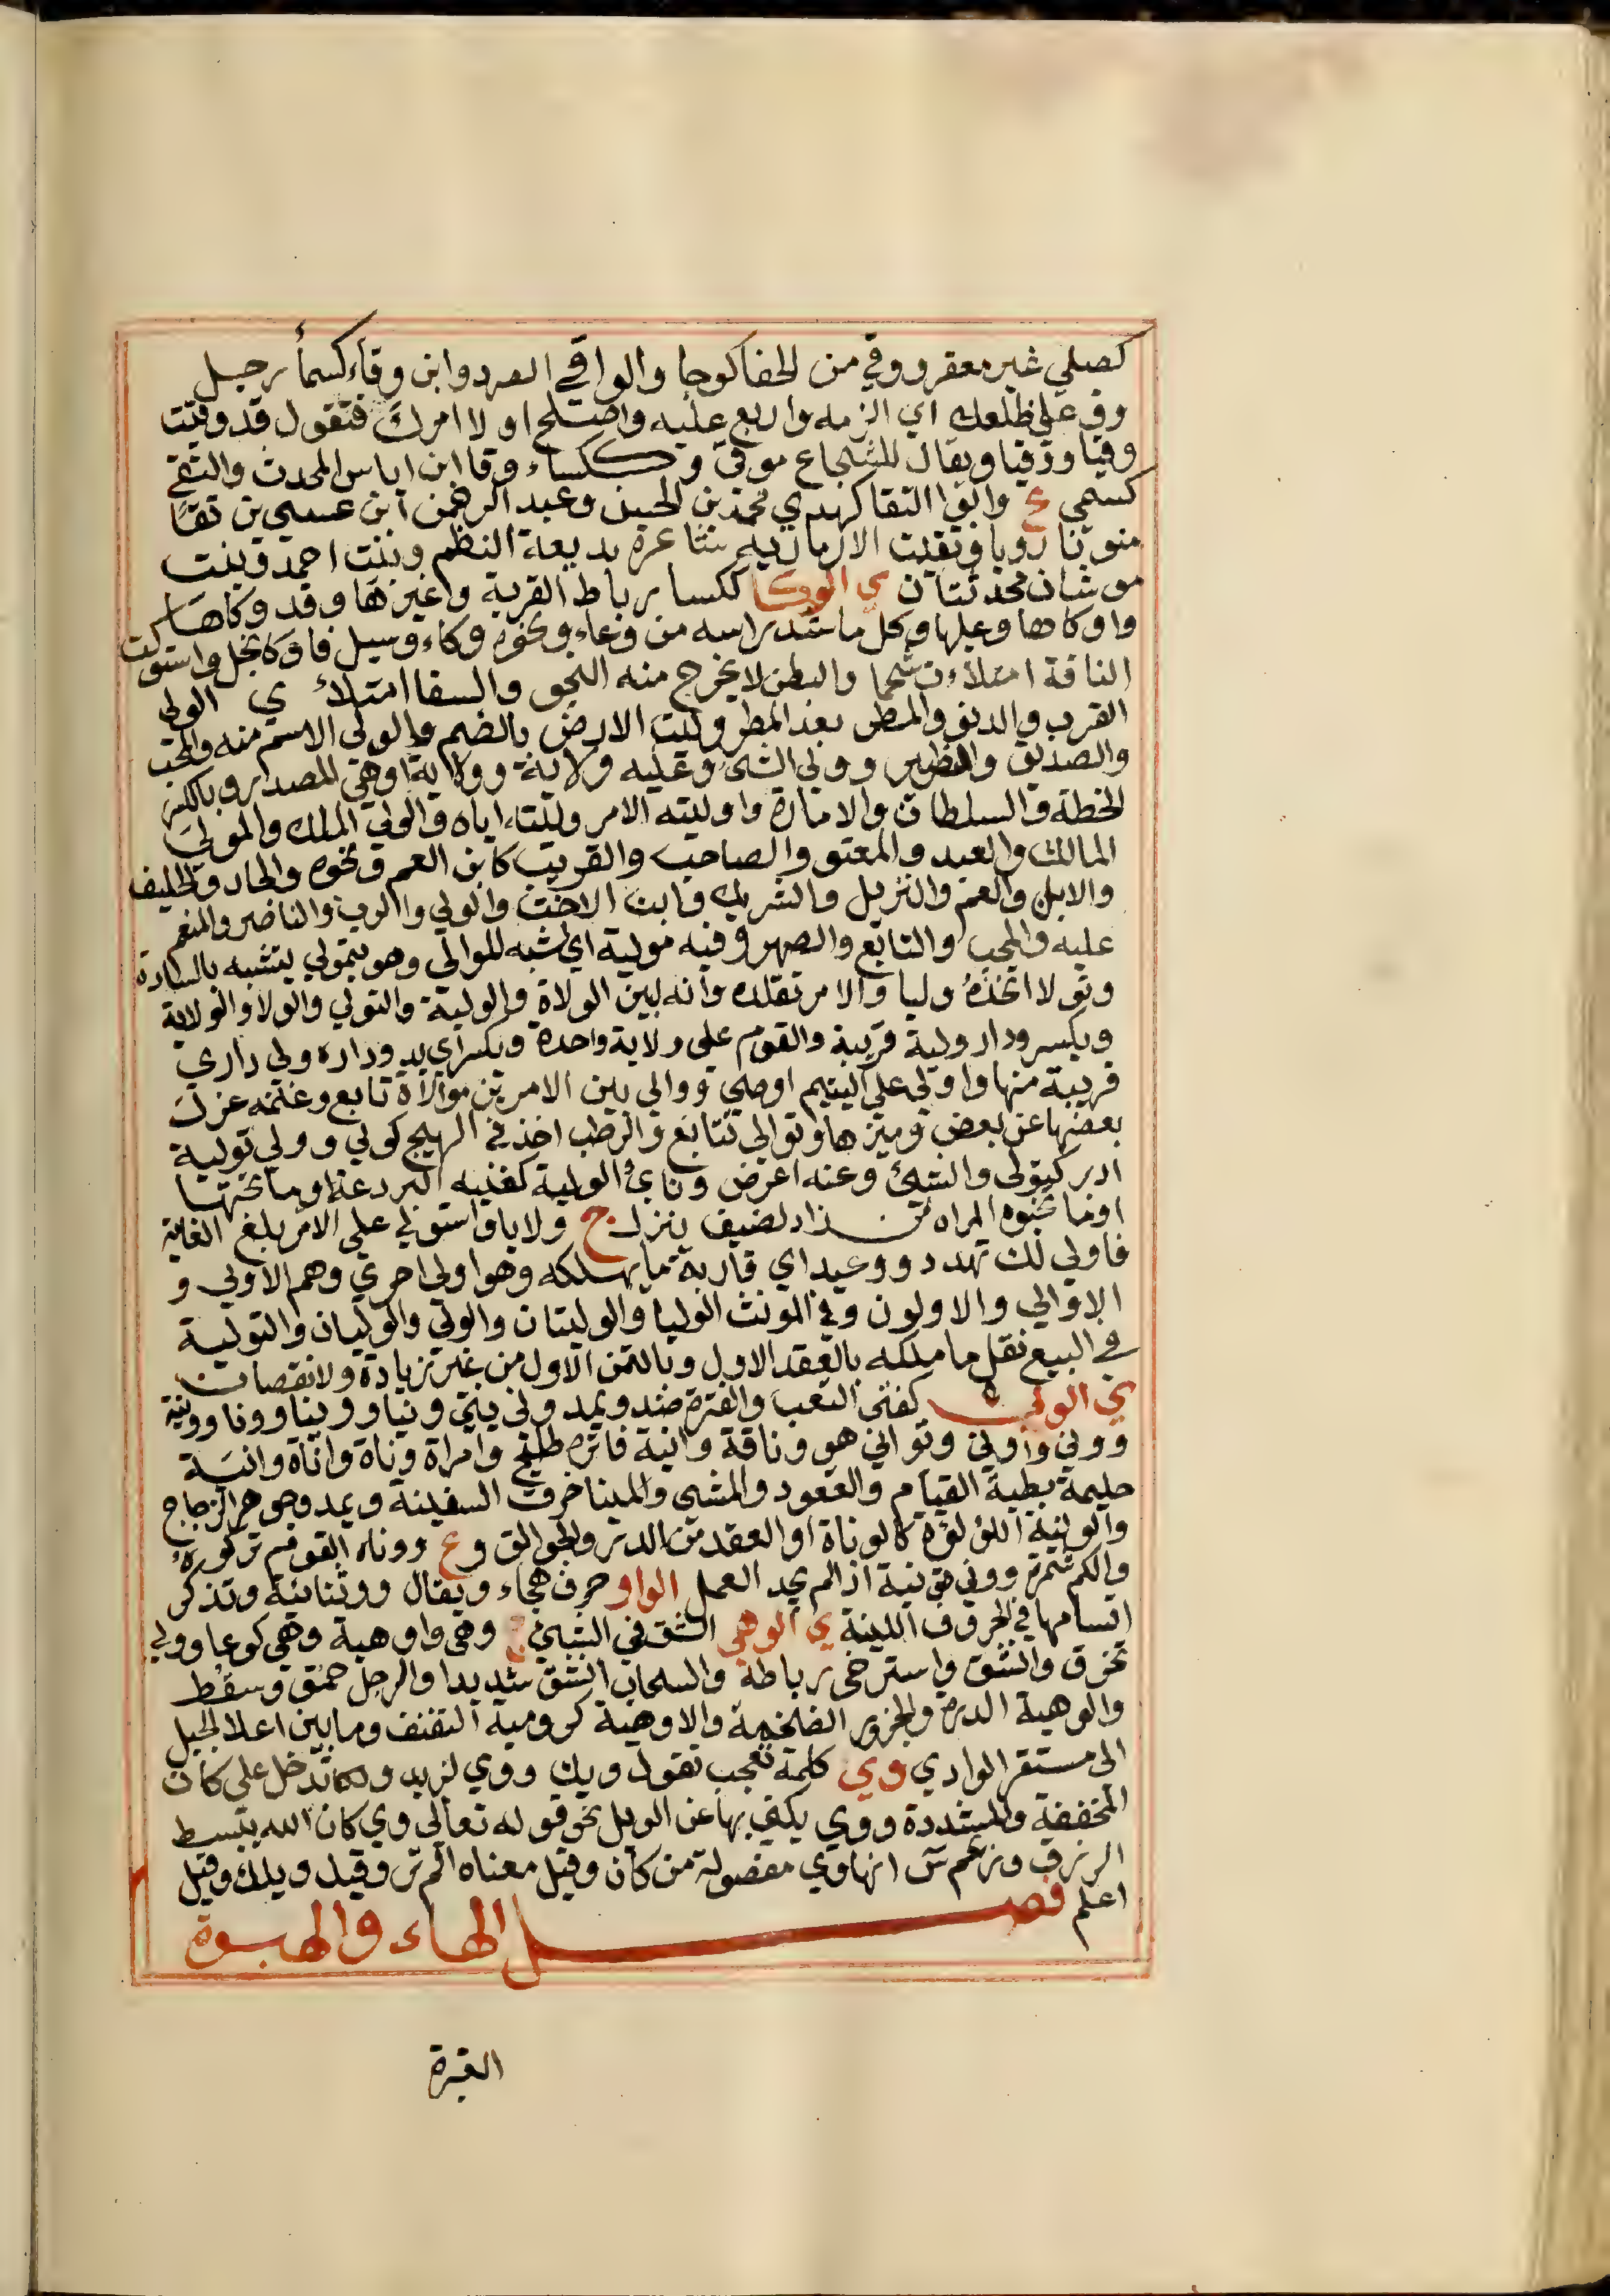 كصلي غير معقر ووقي من الحفا كوجا والواقي الصرد وابن وقاء كسماء رجل
وقِ على ظلعك اي الزمه واربع عليه واصلح اولا امرك فتقول قد وقيت
وقيا ووقيا ويقال للشجاع موقى و ككساء وقا ابن اياس المحدث والتقي
كسمي ع وابو التقا كهدي محمد بن الحسن وعبد الرحمن ابن عيسى بن تقا
منونا رويا وتقيت الارمازيه شاعرة بديعة النظم وبنت احمد وبنت
موشان محدثتان ي الوكا ككسا رباط القربة وغيرها وقد وكاها
واوكاها وعليها وكل ما شد راسه من وعاء ونحوه وكاء وسيل فاوكا بخل واستوكت
الناقة امتلاءت شحما والبطن لا يخرج منه النجو والسقا امتلاء ي الولي
القرب والدنو والمطر بعد المطر وليت الارض بالضم والولي الاسم منه والمحب
والصديق والنظير وولي الشئ وعليه ولاية وولاية او هي المصدر وبالكسر
الخطة والسلطان والامارة واوليته الامر وليته اياه والولي الملك والمولى
المالك والعبد والمعتق والصاحب والقريب كابن العم ونحوه والجار والحليف
والابن والعم والنزيل والشريك وابن الاخت والولي والرب والناصر والمنعم
عليه والمحب والتابع والصهر وفيه مولية اي شبه للموالي وهو يتمولي يتشبه بالسادة
وتولا اتخذه وليا والامر تقلده وانه لبين الولاة والولية والتولي والولا والولاية
ويكسر ودار ولية قريبة والقوم على ولاية واحدة وبكسر اي يد وداره ولى داري
قريبة منها واولى على اليتيم اوصى ووالى بين الامرين موالاة تابع وغنمه عزل
بعضها عن بعض وميزها وتوالى تتابع والرطب اخذ في الهيج كولي وولى تولية
ادبر كتولى والشئ وعنه اعرض ونائ الولية كغنيه البردعة او ما تحتها
او ما تخبوه المراه من زاد لضيف ينزل ج ولايا واستولى على الامر بلغ الغاية
فاولى لك تهدد ووعيد اي قاربه ما يهلكه وهو اولى احرى وهم الاولى و
الاوالي والاولون وفي المونث الوليا والوليتان والولي والوليان والتولية
في البيع نقل ما ملكه بالعقد الاول وبالثمن الاول من غير زيادة ولا نقصان
ي الونى كفتى التعب والفترة ضد ويمد ونى يني ونيا وونيا وونا وونية
وونى واونى وتوانى هو وناقة وانية فاترة طليح وامراة وناة واناة وانية
حليمة بطية القيام والقعود والمشي والمينا مرفت السفينة ويمد وجوهر الزجاج
والونية اللؤلؤة كالوناة او العقد من الدر والجوالق و ع وونا القوم تركوه
والكم شمره وونى تونية اذا لم يجد العمل الواو حرف هجاء ويقال وو ثنائية وتذكر
اقسامها في الحروف اللينة ي الوهي الشق في الشئ ج وهي واوهية وهي كوعا وولي
تخرق وانشق واسترخى رباطة والسحاب انشق شديدا والرجل حمق وسقط
والوهية الدرة والجزور الضخمة والاوهية كروميه النفنف وما بين اعلا الجبل
الى مستقر الوادي وي كلمة تعجب تقول ويك ووي لزيد وكانّ تدخل على كان
المخففة والمشددة ووي يكنى بها عن الويل نحو قوله تعالى وي كان الله يبسط
الرزق وزعم س انها وي مفصولة من كان وقيل معناه الم تر وقيل ويلك وقيل
اعلم فصل الهاء والهبوة
الغبرة